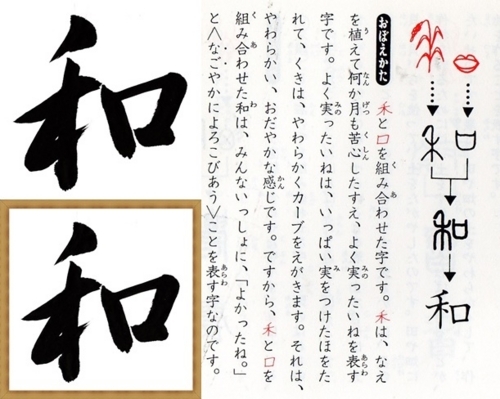 和
和
おぼえかた
禾と口を組み合わせた字です。禾は、なえ
を植えて何か月も苦心したすえ、よく実ったいねを表す
字です。よく実ったいねは、いっぱい実をつけたほをた
れて、くきは、やわらかくカーブをえがきます。それは、
やわらかい、おだやかな感じです。ですから、禾と口を
組み合わせた和は、みんないっしょに、「よかったね。」
と＜なごやかによろこびあう＞ことを表す字なのです。
禾 口
和
和